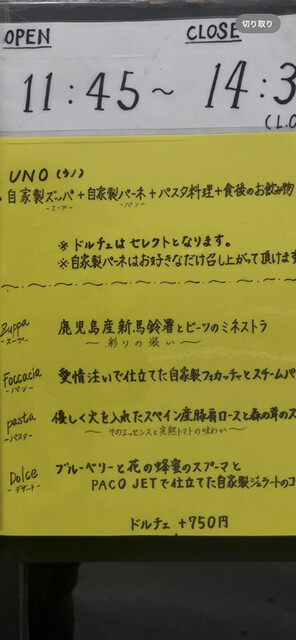 切り取り
OPEN CLOSE
11:45～ 14:3
(L.O
UNO (ウノ)
自家製ズッパ+自家製パーネ+パスタ料理+食後のお飲み物
-スープ- -パン-
※ドルチェはセレクトとなります。
※自家製パーネはお好きなだけ召し上がって頂けます
Zuppa 鹿児島産新馬鈴薯とビーツのミネストラ
-スープ- ～彩りの装い～
Foccacia 愛情注いで仕立てた自家製フォカッチャとスチームパ
-パン-
pasta 優しく火を入れたスペイン産豚肩ロースと森の茸のス
-パスタ- ～そのエッセンスと完熟トマトの味わい～
Dolce ブルーベリーと花の蜂蜜のスプーマと
-デザート- PACO JETで仕立てた自家製ジェラートのコ
ドルチェ +750円